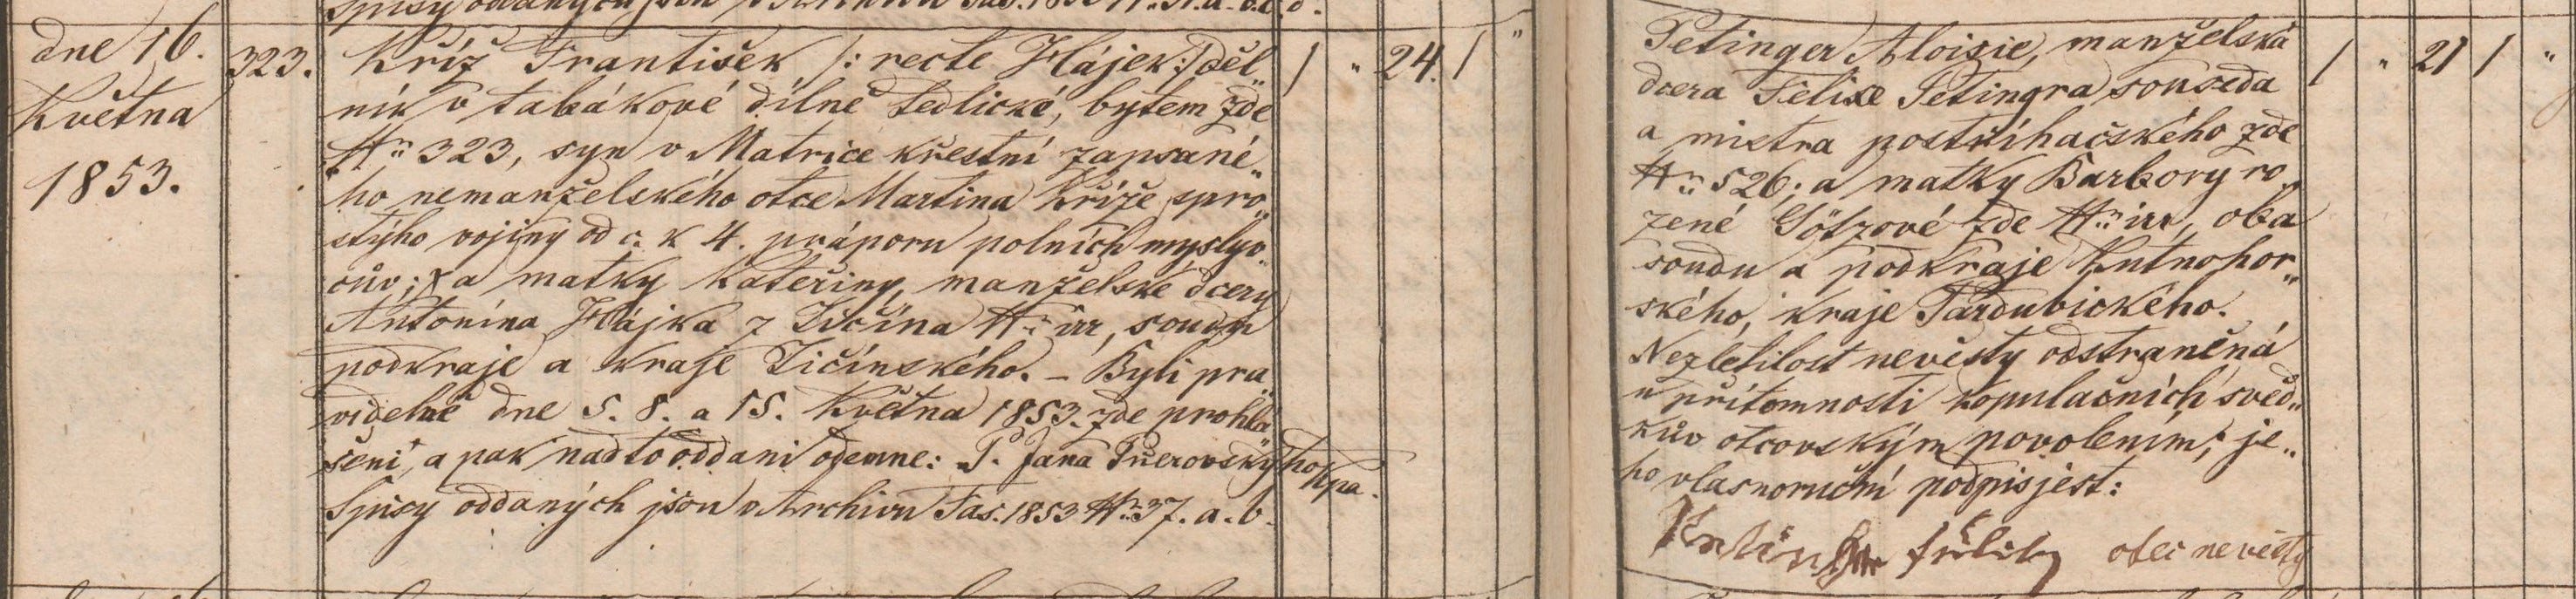 spisy oddaných jsou v Archivu Fas. 1853
dne 16.
Května
1853.
323.
Kříž František /: recte Hájek :/ děl„
ník v tabákové dílně Sedlické, bytem zde
Nro 323, syn v Matrice křestní zapsané„
ho nemanželského otce Martina Kříže, spro„
stýho vojíny od c. k 4. práporu polních myslyv„
cův; X a matky Kateřiny, manželské dcery
Antonína Hájka z Jičína Nro irr, soudu
podkraje a kraje Jičínského. – Byli pra„
videlně dne 5. 8. a 15. Května 1853. zde prohlá„
šeni, a pak nadto oddani odemne: P. Jana Přerovskýho kpa.
Spisy oddaných jsou v Archivu Fas. 1853 Nro 37. a. b.
/ „ 24. / „
Petinger Aloisie, manželská
dcera Felixe Petingra souseda
a mistra postřihačského zde
Nro 526; a matky Barbory ro„
zené Götzové zde Nro irr, oba
soudu a podkraje Kutnohor„
ského, kraje Pardubického.
Nezletilost nevěsty odstraněná
v přítomnosti kopulačních svěd„
kův otcovským povolením; je„
ho vlasnoruční podpis jest:
otec nevěsty
/ „ 21 / „